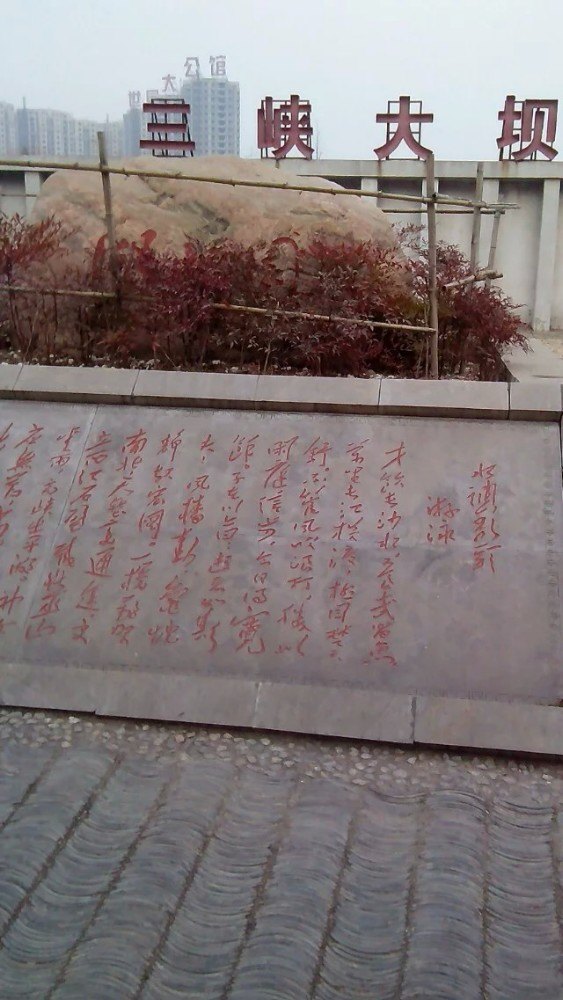 大公馆
三峡大坝
水调歌头
游泳
才饮长沙水又食武昌鱼
万里长江横渡极目楚天
舒不管风吹浪打胜似
闲庭信步今日得宽
馀子在川上曰逝者如斯
夫风樯动龟蛇
静起宏图一桥飞架
南北天堑变通途更
立西江石壁截断巫山
云雨高峡出平湖神女
应无恙